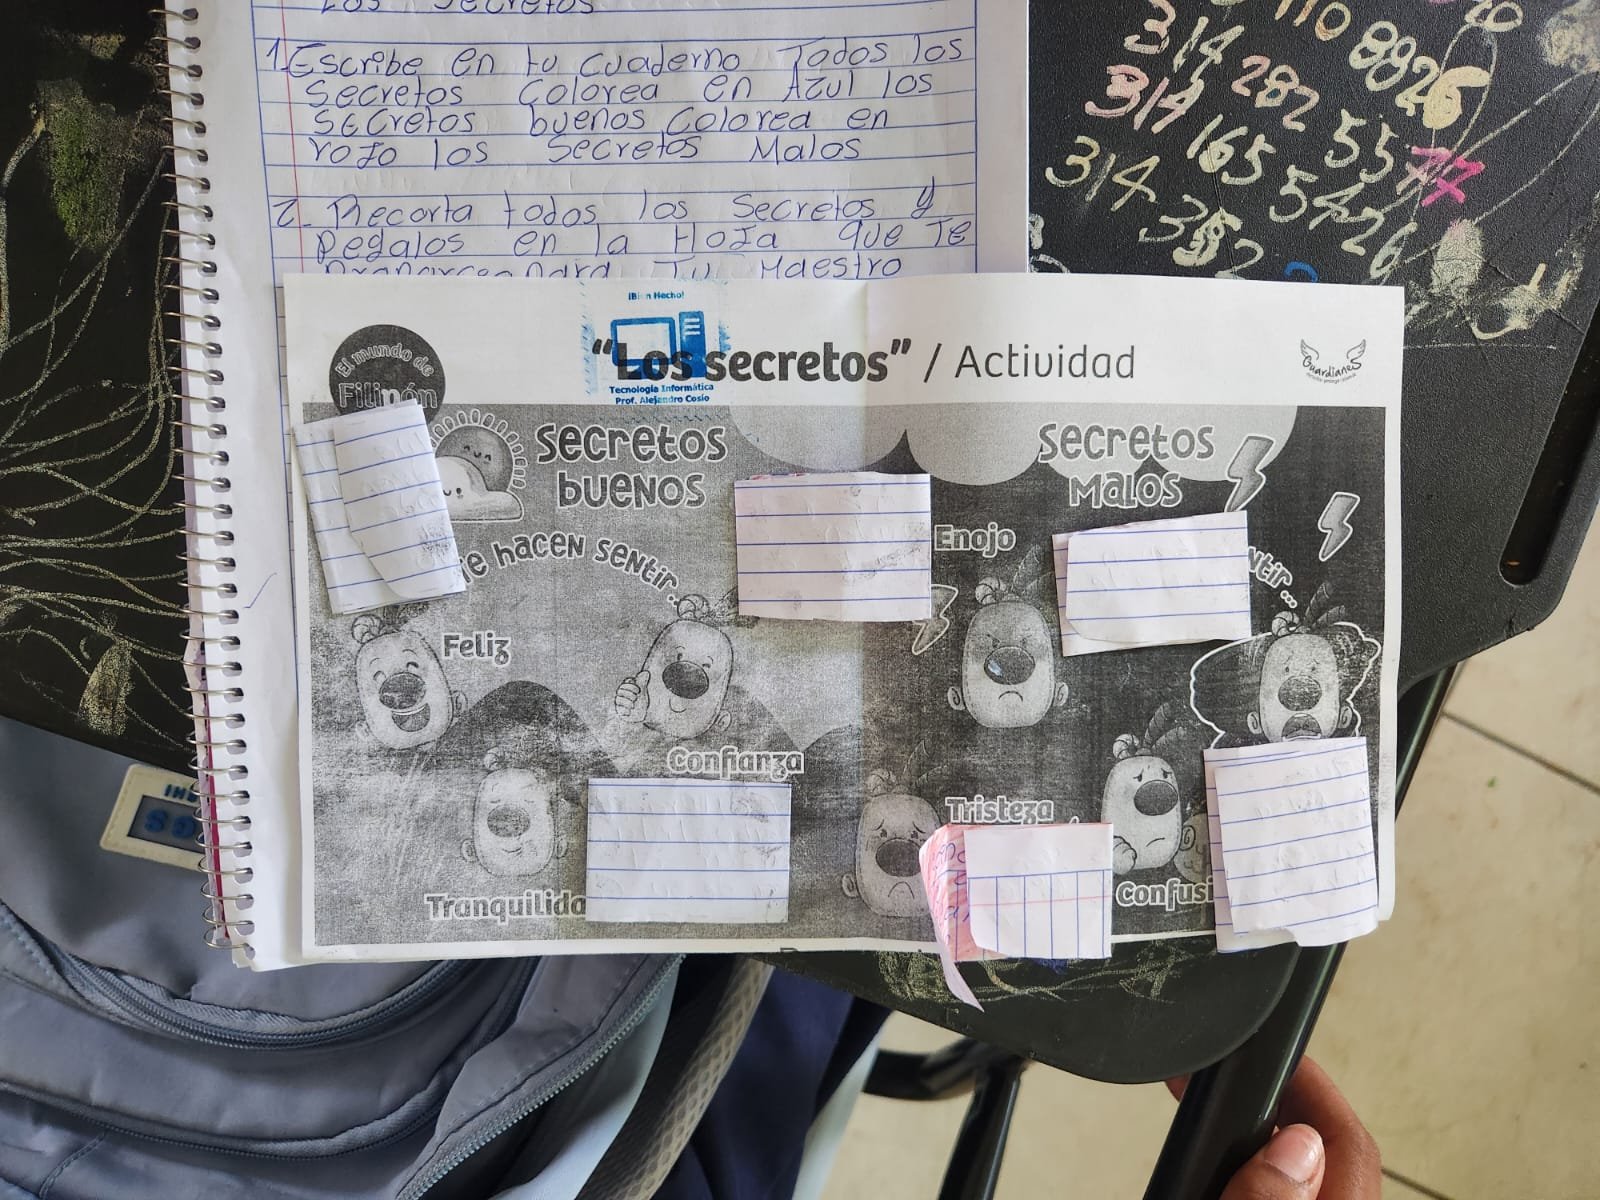 Los Secretos
1. Escribe en tu cuaderno Todos los
Secretos Colorea en Azul los
Secretos buenos Colorea en
rojo los Secretos Malos
2. Recorta todos los Secretos y
Pegalos en la Hoja que Te
Tu Maestro
¡Bien Hecho!
"Los secretos" / Actividad
Tecnología Informática
Prof. Alejandro Cosío
El mundo de
Filipón
Guardianes
Secretos
buenos
Secretos
Malos
Te hacen sentir...
Enojo
ntir...
Feliz
Confianza
Tristeza
Tranquilida
Confusi
314
110 8826
314 282
314 165 55 77
352 5426